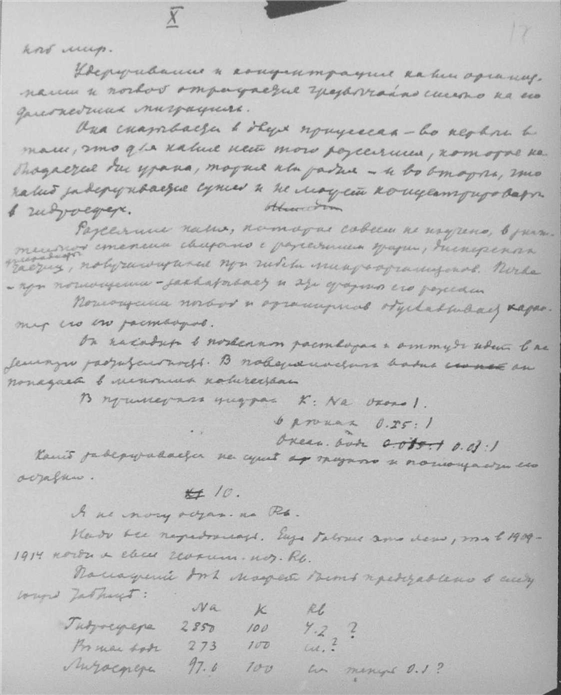 X
ный мир.
Удерживание и концентрация калия организ-
мами и почвой отражается чрезвычайно сильно на его
дальнейших миграциях.
Она сказывается в двух процессах – во первых в
том, что для калия нет того рассеяния, которое на
блюдается для урана, тория или радия – и во вторых, что
калий задерживается сушей и не может концентрироваться
в гидросфере.
Рассеяние калия, которое совсем не изучено, в
степени связано с рассеянием
частиц, получающихся при гибели микроорганизмов. Почва
– при поглощении – захватывает и эту форму его рассеяния
Поглощение почвой и организмов обуславливает харак-
тер его растворов.
Он находится в почвенных растворах и оттуда идет в на
земную растительность. В поверхностные воды он
попадает в меньших количествах
В примерных цифрах K : Na около 1.
в речных 0.25 : 1
Океан. воде 0.03 : 1
Калий задерживается на суше и поглощается его
осадками.
10.
Я не могу остан. на Rb.
Надо все переделать. Еще больше это ясно, чем в 1909-
1914 когда я свел геохим. ист. Rb.
может быть представлено в следу
ющей таблице:
Na K Rb
Гидросфера 2850 100 4.2 ?
воде 273 100 сл. ?
Литосфера 97.0 100 сл теперь 0.1 ?